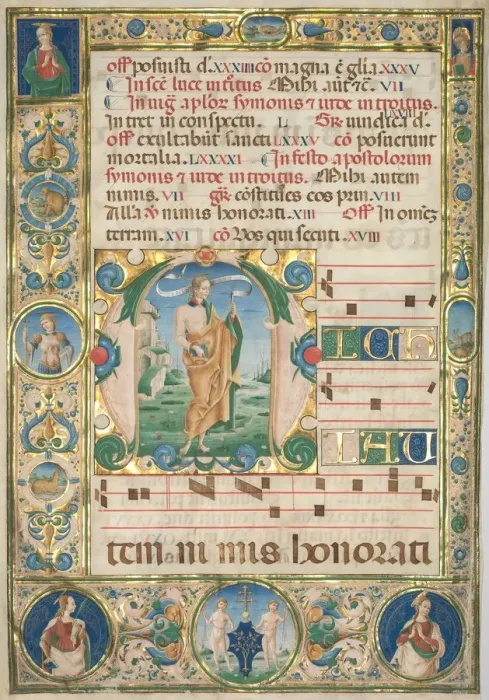 off posuisti d̄. XXXIII cō magna ē glīa. XXXV
In scē luce introitus Mihi aut̄ ec̄. VII
In uig̃ aplōr symonis ⁊ iude introitus.
Intret in conspectu. L Gr̃. uindica d̄. LXVIII
off exultabūt sancti LXXXV cō posuerunt
mortalia. LXXXXI In festo apostolorum
symonis ⁊ iude introitus. Mihi autem
nimis. VII gr̃. cōstitues eos prin. VIII
Alla nimis honorati. XIII Off In omnēz
terram. XVI cō Vos qui secuti. XVIII
M
I CH
I AU
tem ni mis honorati